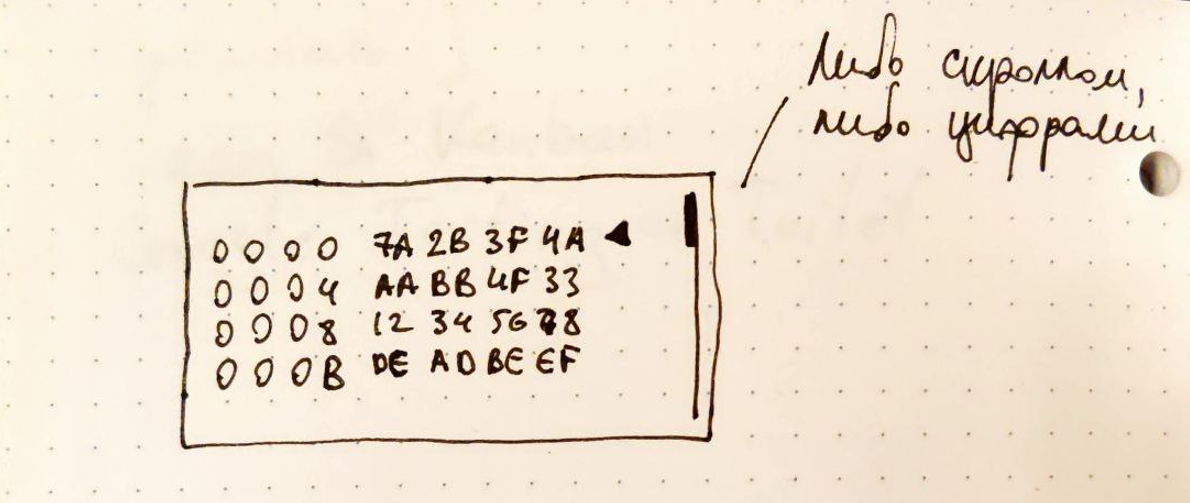 либо скроллом,
либо цифрами
0000 7A 2B 3F 4A ◄
0004 AA BB 4F 33
0008 12 34 56 78
000B DE AD BE EF